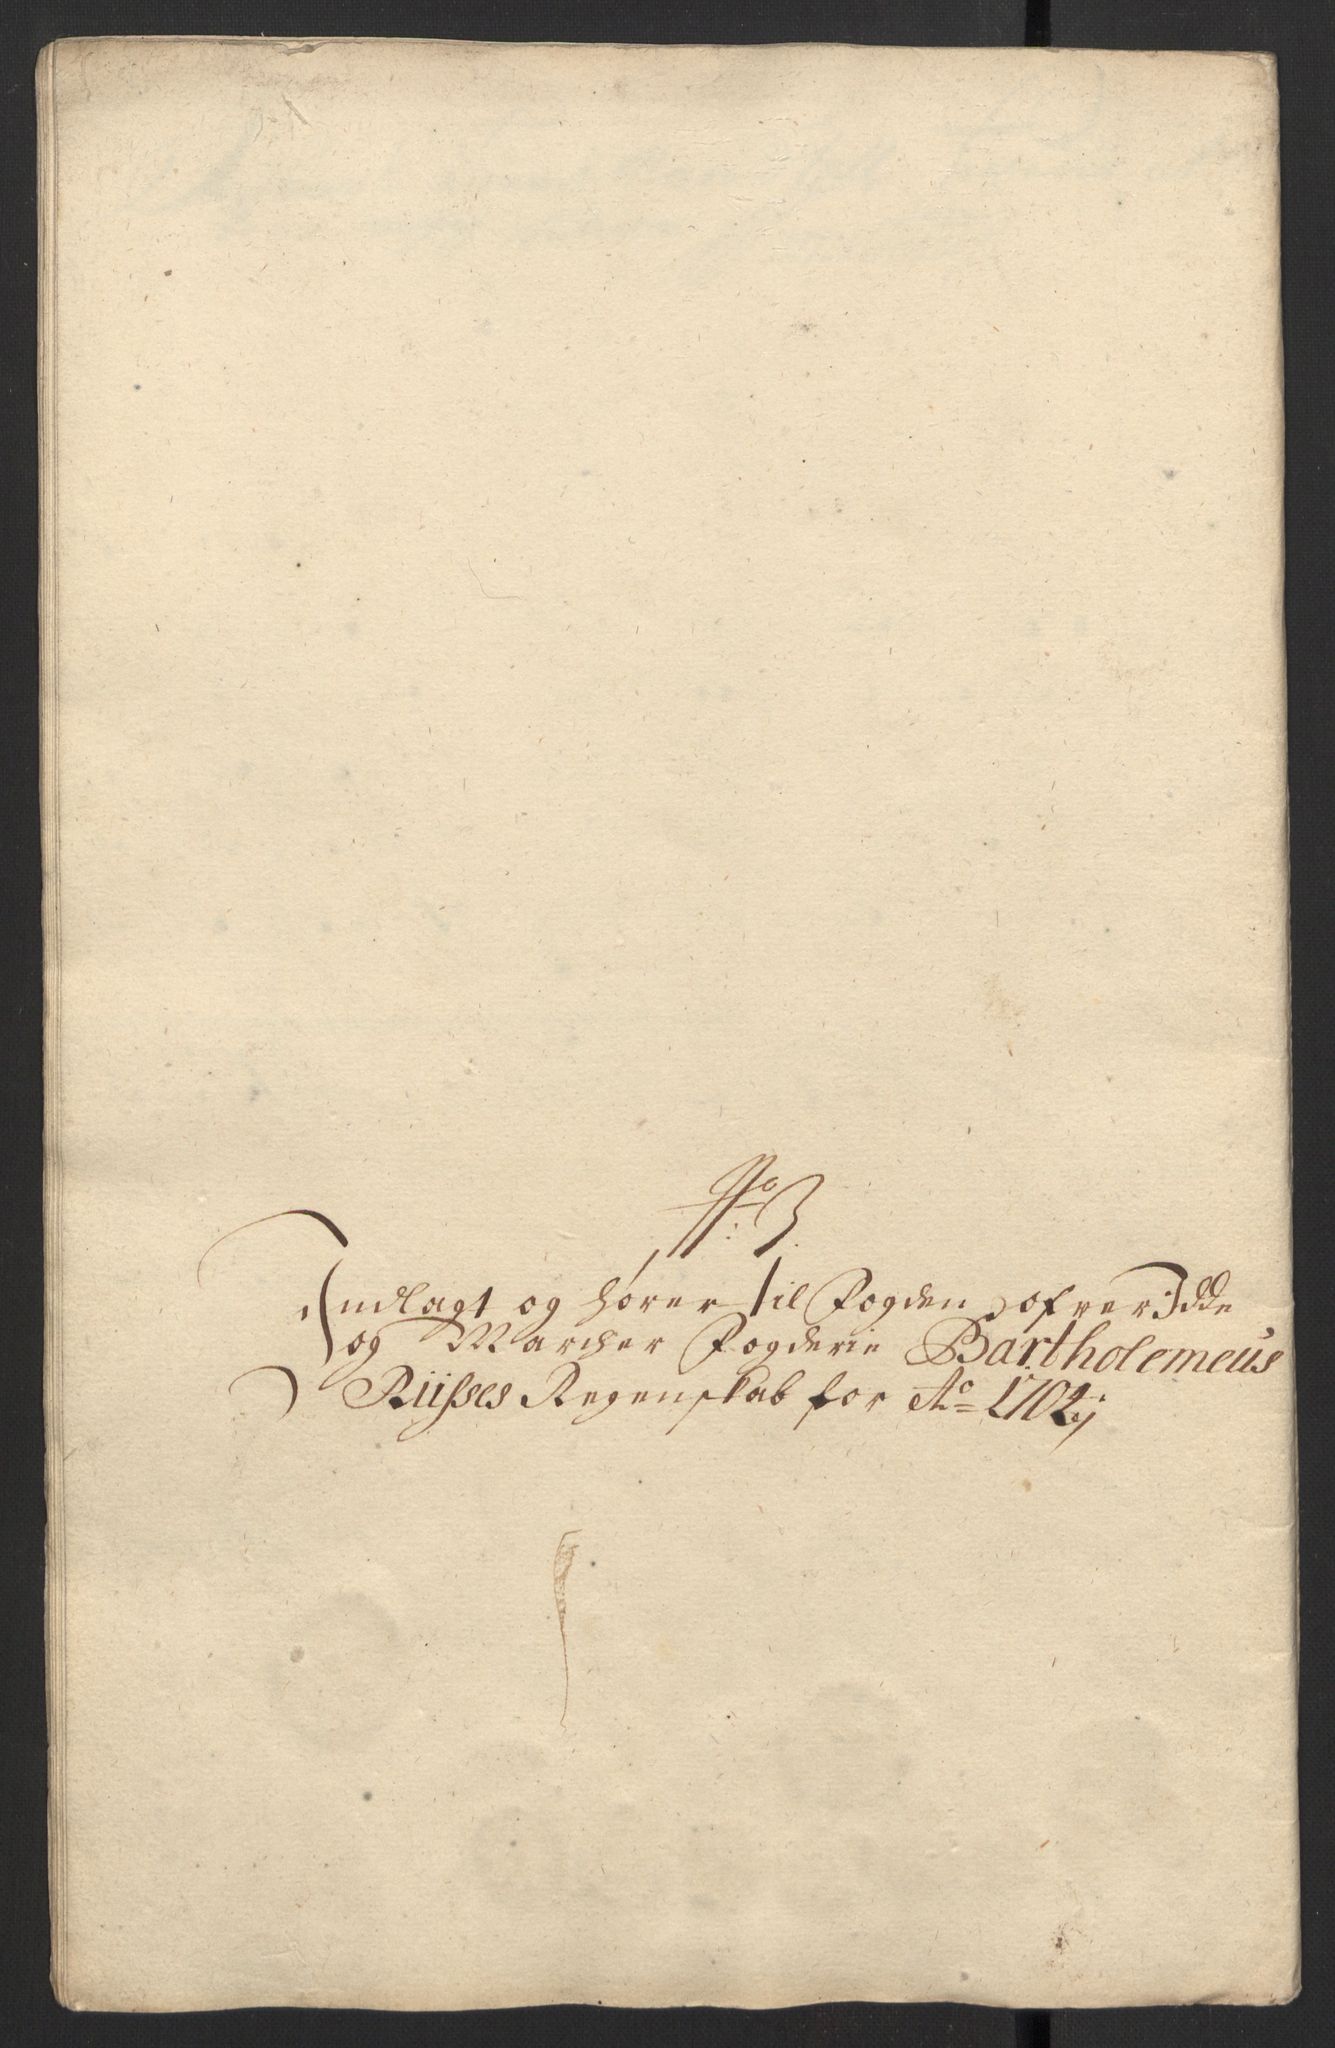 No 3.
Indlagt og hører til Fogden ofver Idde
og Marcher Fogderie Bartholemeus
Rüsses Regenskab for Ao 1704